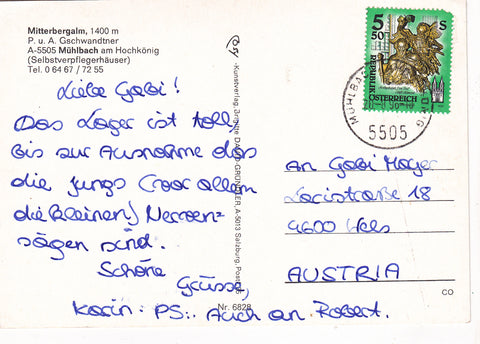 Mitterbergalm, 1400 m
P. u. A. Gschwandtner
A-5505 Mühlbach am Hochkönig
(Selbstverpflegerhäuser)
Tel. 0 64 67 / 72 55
Liebe Gabi!
Das Lager ist toll,
bis zur Ausnahme das
die Jungs (vor allem
die kleinen) Nerven-
sägen sind.
Schöne
Grüsse,
Karin. PS.: Auch an Robert.
Nr. 6828
A-5013 Salzburg, Postf.
5 S
50
REPUBLIK
ÖSTERREICH
5505
An Gabi Mayer
Lacistraße 18
4600 Wels
AUSTRIA
CO